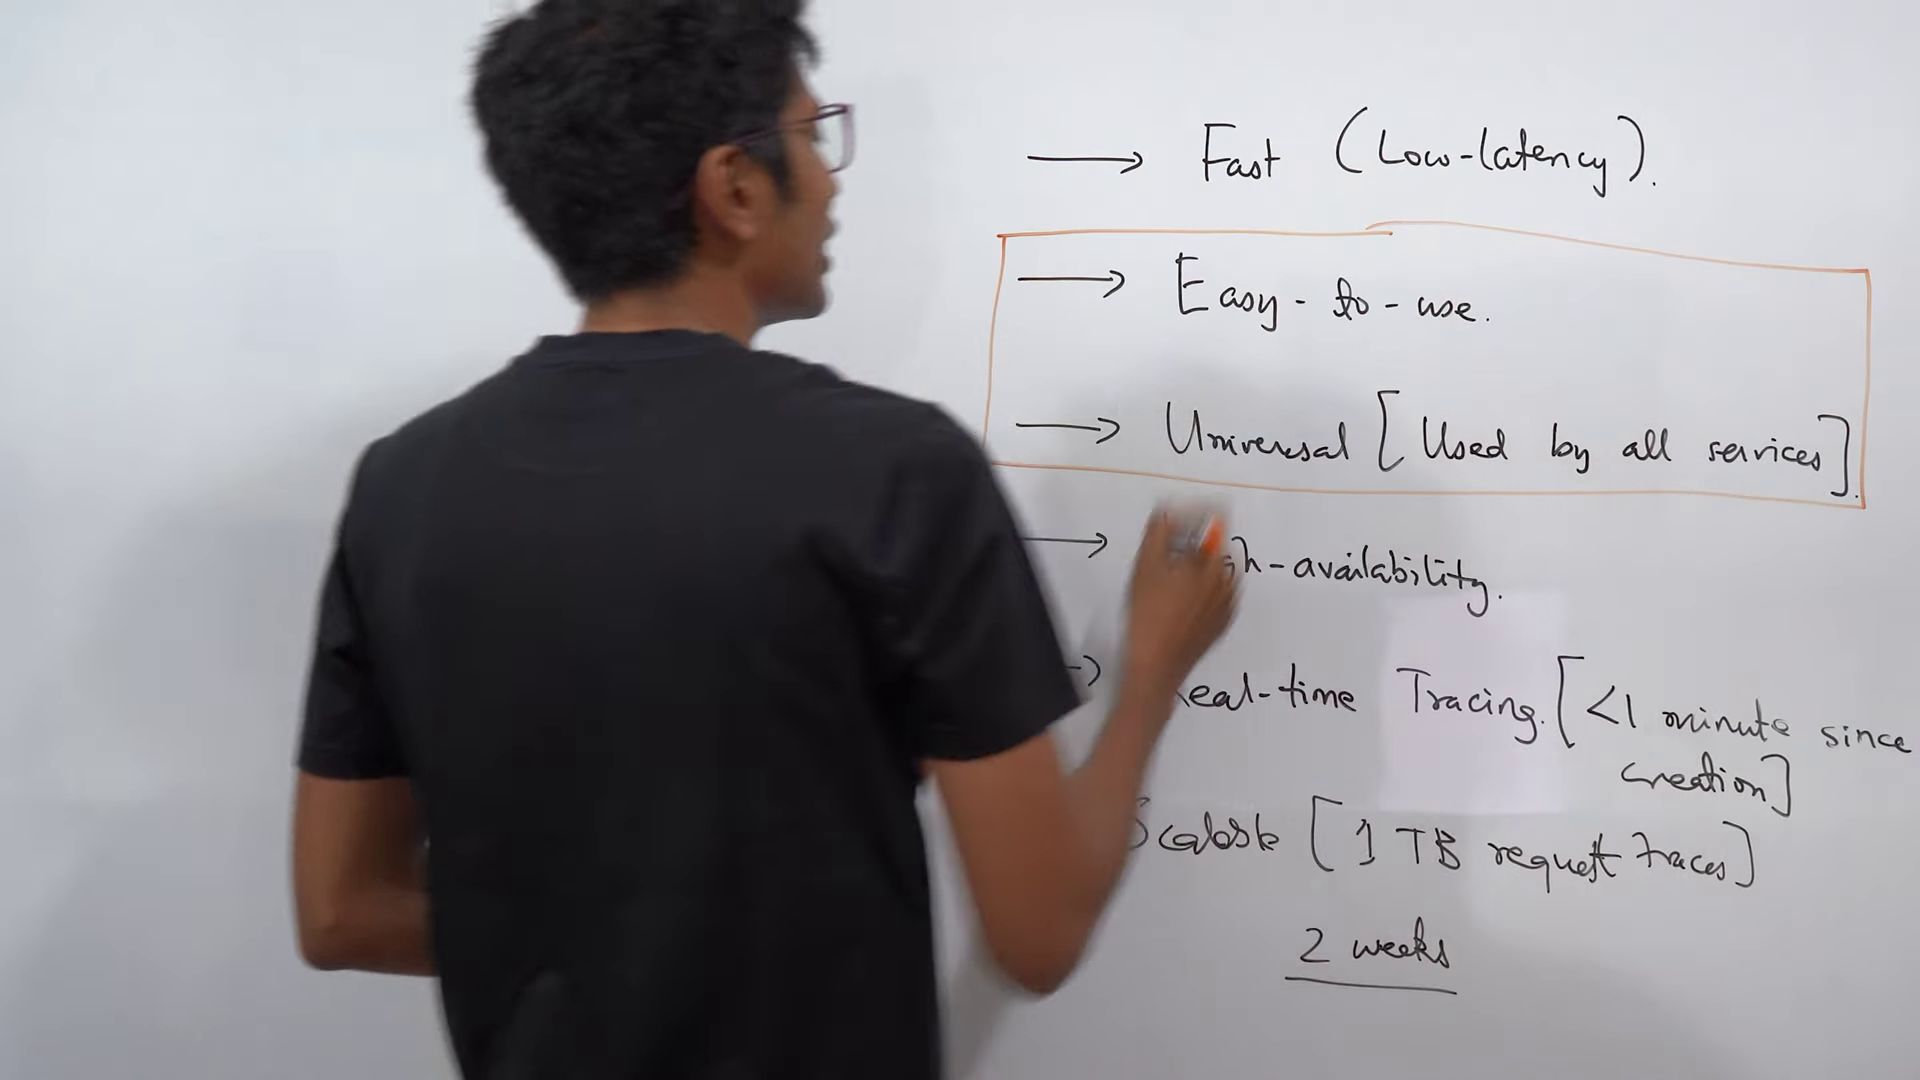 → Fast (Low-latency).
→ Easy-to-use.
→ Universal [Used by all services].
→ gh-availability.
→ Real-time Tracing. [<1 minute since creation]
Scalable [1 TB request traces]
2 weeks